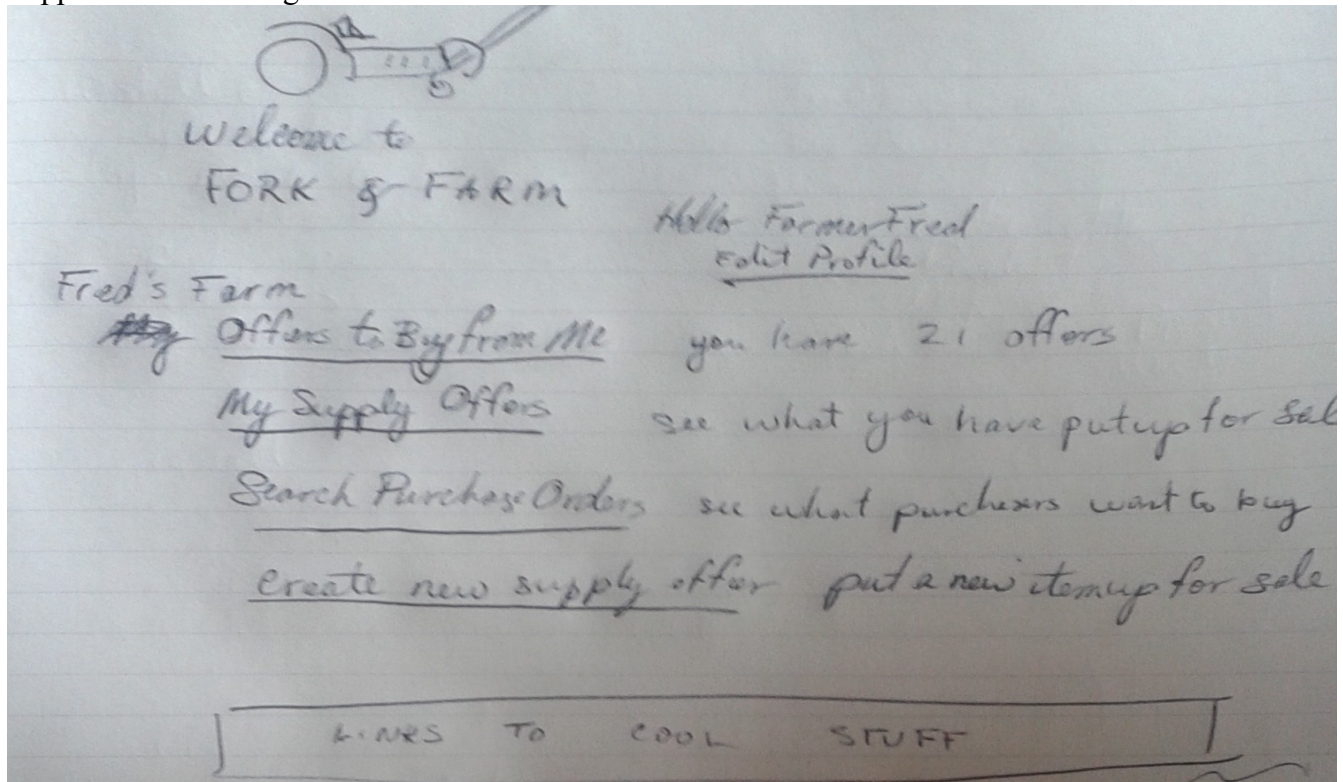 Welcome to
FORK & FARM
Hello Farmer Fred
Edit Profile
Fred's Farm
Offers to Buy from Me you have 21 offers
My Supply Offers see what you have put up for sal
Search Purchase Orders see what purchasers want to buy
create new supply offer put a new item up for sale
LINKS TO COOL STUFF